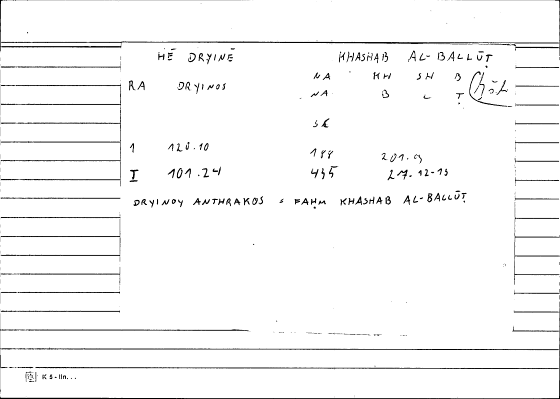 HĒ DRYINĒ KHASHAB AL-BALLŪṬ
RA DRYINOS NA KH SH B
NA B L Ṭ
SK
1 120.10 188 201.9
I 101.24 435 27.12-13
DRYINOY ANTHRAKOS = FAḤM KHASHAB AL-BALLŪṬ
K 5-lin...